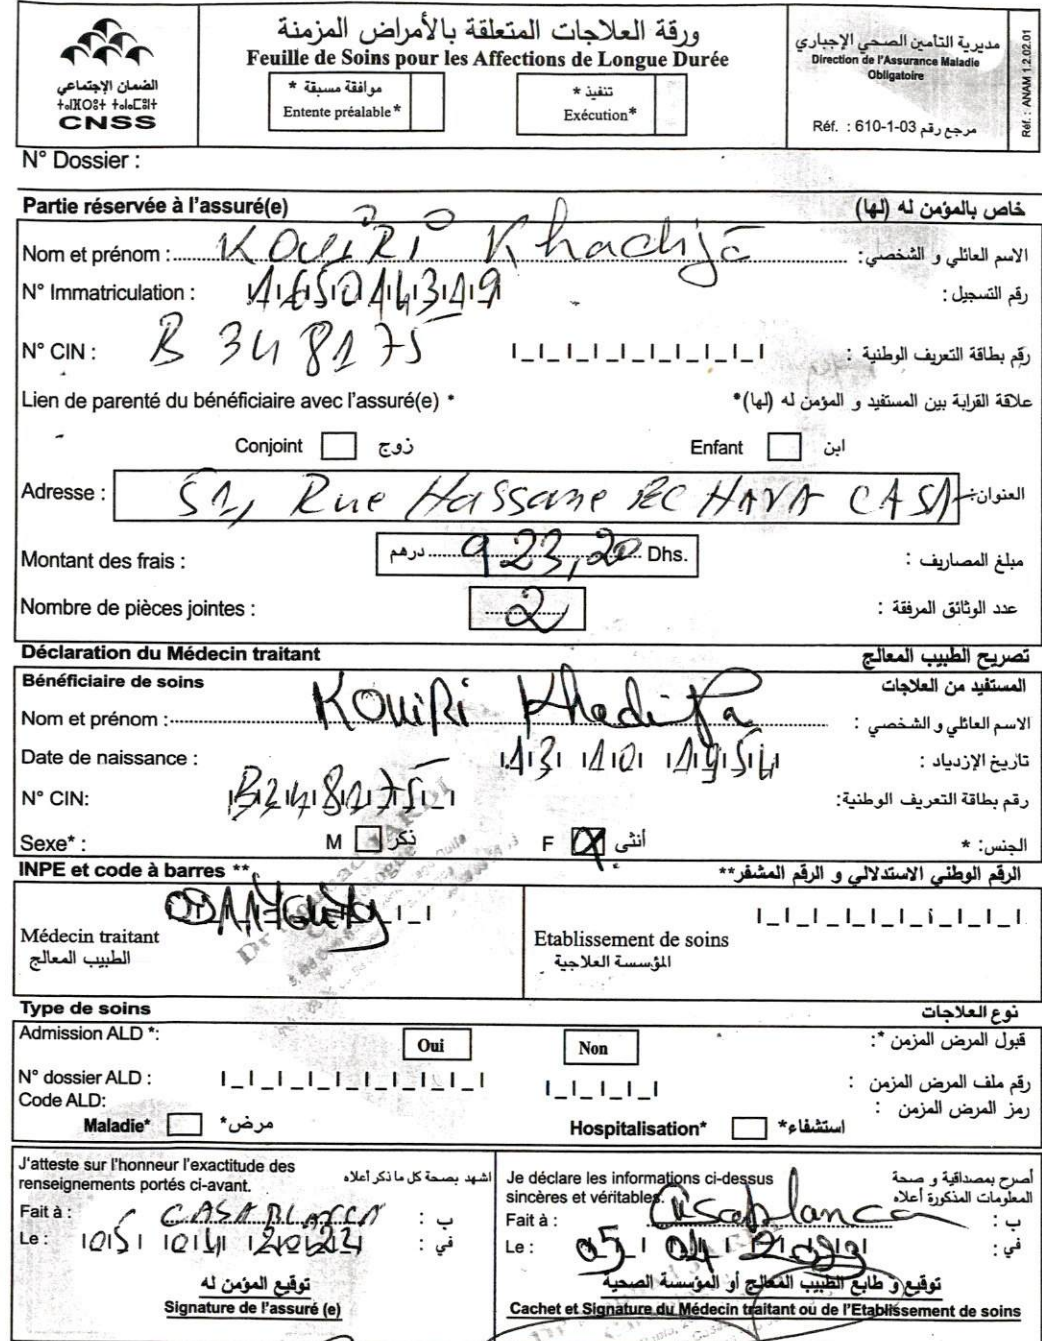 الضمان الإجتماعي
ⵜⴰⵎⴰⵏⵓⵜ
CNSS
ورقة العلاجات المتعلقة بالأمراض المزمنة
Feuille de Soins pour les Affections de Longue Durée
موافقة مسبقة *
Entente préalable*
تنفيذ *
Exécution*
مديرية التأمين الصحي الإجباري
Direction de l'Assurance Maladie
Obligatoire
Réf. : 610-1-03 مرجع رقم
Réf. : ANAM 1.2.02.01
N° Dossier :
Partie réservée à l'assuré(e) خاص بالمؤمن له (لها)
Nom et prénom : KOUIRI Khadija الاسم العائلي و الشخصي:
N° Immatriculation : 165014319 رقم التسجيل :
N° CIN : B 348175 رقم بطاقة التعريف الوطنية :
Lien de parenté du bénéficiaire avec l'assuré(e) * علاقة القرابة بين المستفيد و المؤمن له (لها)*
Conjoint زوج Enfant ابن
Adresse : 51, Rue Hassane CASA العنوان:
Montant des frais : درهم 923,20 Dhs. مبلغ المصاريف :
Nombre de pièces jointes : 2 عدد الوثائق المرفقة :
Déclaration du Médecin traitant تصريح الطبيب المعالج
Bénéficiaire de soins المستفيد من العلاجات
Nom et prénom : KOUIRI Khadija الاسم العائلي و الشخصي :
Date de naissance : 13 10 1954 تاريخ الإزدياد :
N° CIN: B348175 رقم بطاقة التعريف الوطنية:
Sexe* : M ذكر F أنثى الجنس: *
INPE et code à barres ** الرقم الوطني الاستدلالي و الرقم المشفر**
Médecin traitant
الطبيب المعالج
Etablissement de soins
المؤسسة العلاجية
Type de soins نوع العلاجات
Admission ALD *: Oui Non قبول المرض المزمن *:
N° dossier ALD : رقم ملف المرض المزمن :
Code ALD: رمز المرض المزمن :
Maladie* مرض* Hospitalisation* استشفاء*
J'atteste sur l'honneur l'exactitude des
renseignements portés ci-avant.
اشهد بصحة كل ما ذكر أعلاه
Fait à : CASABLANCA ب :
Le : 05 04 2023 في :
توقيع المؤمن له
Signature de l'assuré (e)
Je déclare les informations ci-dessus
sincères et véritables.
أصرح بمصداقية و صحة
المعلومات المذكورة أعلاه
Fait à : Casablanca ب :
Le : 05 04 2023 في :
توقيع و طابع الطبيب المعالج أو المؤسسة الصحية
Cachet et Signature du Médecin traitant ou de l'Etablissement de soins